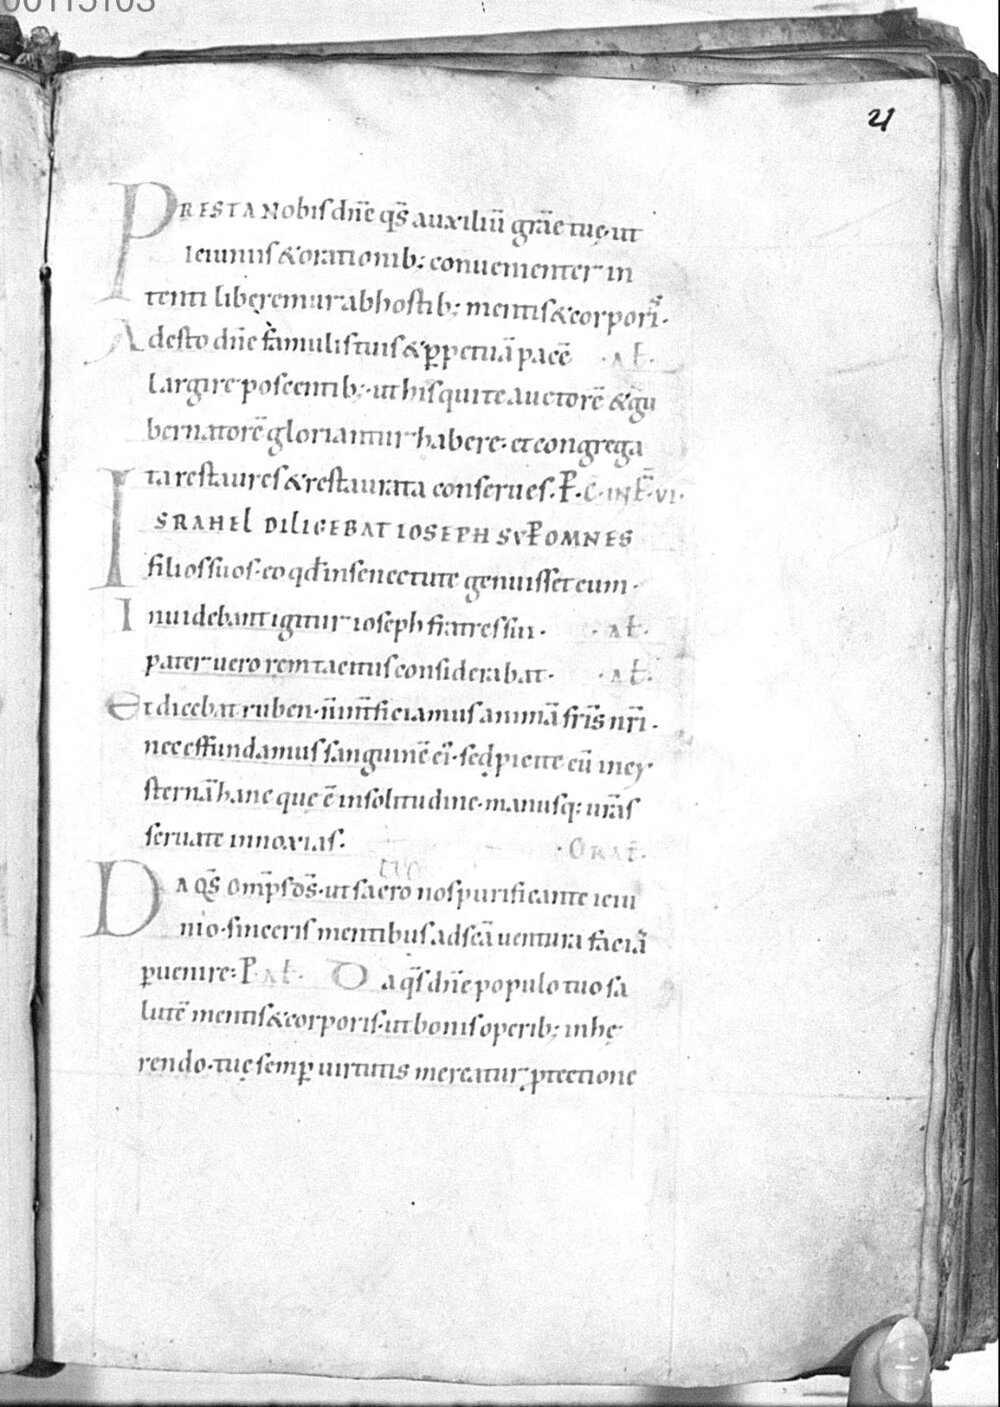 00115103
21
PRESTA Nobis dn̄e qs̄ auxiliū gr̄ae tuę· ut
Ieiuniis & orationib; conuenienter in
tenti liberemur ab hostib; mentis & corpori᷒·
Adesto dn̄e famulis tuis & ꝑpetuā pacē ·Al̄·
largire poscentib;· ut his qui te auctorē & gu
bernatorē gloriantur habere· et congrega
ta restaures & restaurata conserues. P̄. C· IN F̄· VI·
ISRAHEL DILIGEBAT IOSEPH SUP̄ OMNES
filios suos· eo qđ in senectute genuisset eum·
Inuidebant igitur ioseph fratres sui· ·Al̄·
pater uero rem tacitus considerabat· ·Al̄·
Et dicebat ruben· n̄ int̄ficiamus animā fr̄is nr̄i·
nec effundamus sanguinē ei᷒· sed ꝓicite eū in cy
sternā hanc quę ē in solitudine· manusq; ur̄as
seruate innoxias. ·ORAT̄·
tuo
DA QS̄ Omp̄s ds̄· ut sacro nos purificante ieiu
nio· sinceris mentibus ad sc̄a uentura faciā
ꝑuenire: P̄. Al̄· Da qs̄ dn̄e populo tuo sa
lutē mentis & corporis· ut bonis operib; inhę
rendo· tuę semꝑ uirtutis mereatur ꝓtectione